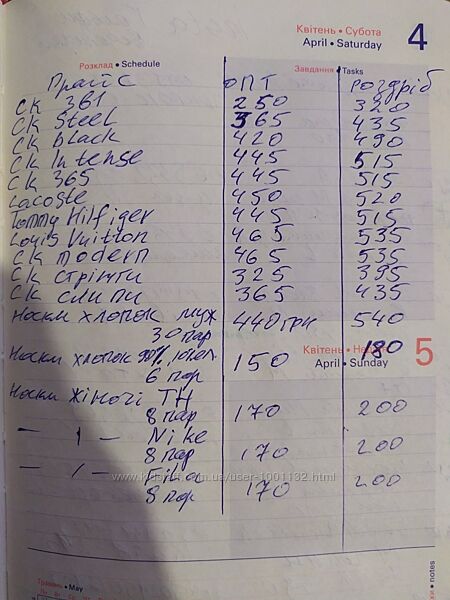 Квітень • Субота
April • Saturday 4
Розклад • Schedule Завдання • Tasks
Прайс ОПТ роздріб
CK 361 250 320
CK Steel 365 435
CK black 420 490
CK Intense 445 515
CK 365 445 515
Lacoste 450 520
Tommy Hilfiger 445 515
Louis Vuitton 465 535
CK modern 465 535
CK стрінги 325 395
CK сліпи 365 435
Носки хлопок муж 440 грн 540
30 пар
Квітень • Неділя 5
April • Sunday
Носки хлопок 90% 150 180
6 пар
Носки жіночі TH
8 пар 170 200
— 1 — Nike
8 пар 170 200
— 1 — Fila
8 пар 170 200
Травень • May
• notes